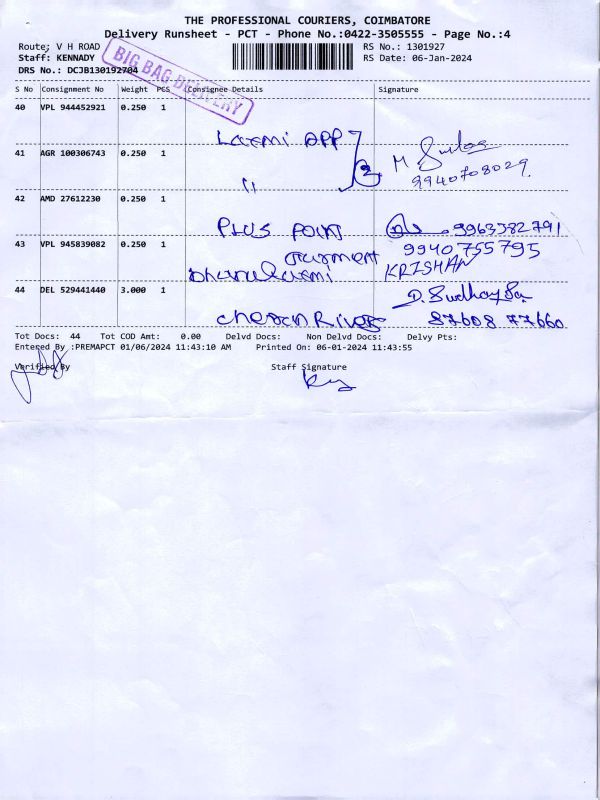 THE PROFESSIONAL COURIERS, COIMBATORE
Delivery Runsheet - PCT - Phone No.:0422-3505555 - Page No.:4
Route; V H ROAD
RS No.: 1301927
Staff: KENNADY
RS Date: 06-Jan-2024
DRS No.: DCJB130192704
BIG BAG DELIVERY
S No Consignment No Weight PCS Consignee Details Signature
40 VPL 944452921 0.250 1
Laxmi APP
41 AGR 100306743 0.250 1
2
M
9940708029.
"
42 AMD 27612230 0.250 1
PLUS POINT
9963382791
43 VPL 945839082 0.250 1
Garment
9940755795
Dhanalaxmi
KRISHAN
44 DEL 529441440 3.000 1
Cheran River
87608 77660
Tot Docs: 44 Tot COD Amt: 0.00 Delvd Docs: Non Delvd Docs: Delvy Pts:
Entered By :PREMAPCT 01/06/2024 11:43:10 AM Printed On: 06-01-2024 11:43:55
Verified By
Staff Signature